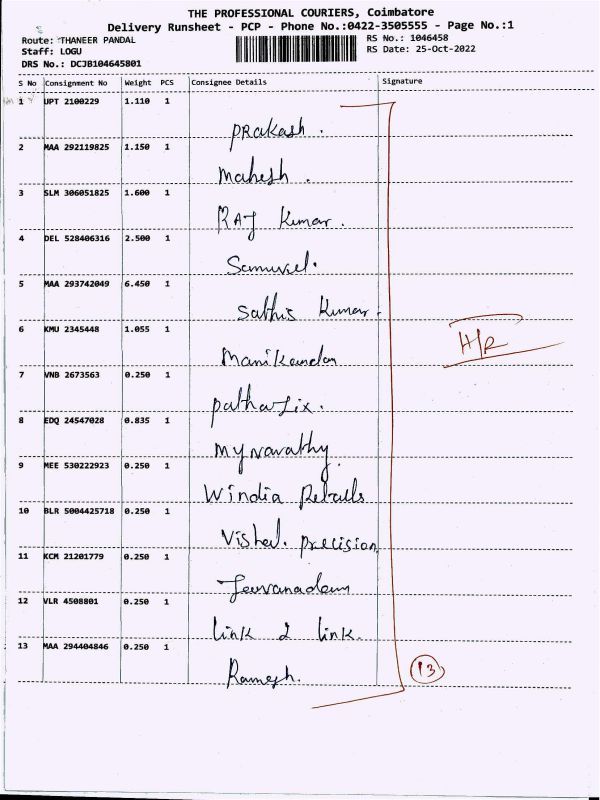 THE PROFESSIONAL COURIERS, Coimbatore
Delivery Runsheet - PCP - Phone No.:0422-3505555 - Page No.:1
Route: THANEER PANDAL RS No.: 1046458
Staff: LOGU RS Date: 25-Oct-2022
DRS No.: DCJB104645801
S No Consignment No Weight PCS Consignee Details Signature
1 UPT 2100229 1.110 1
Prakash.
2 MAA 292119825 1.150 1
Mahesh.
3 SLM 306051825 1.600 1
RAJ Kumar.
4 DEL 528406316 2.500 1
Samuvel.
5 MAA 293742049 6.450 1
Sathis Kumar.
6 KMU 2345448 1.055 1
H/R
Manikandan
7 VNB 2673563 0.250 1
8 EDQ 24547028 0.835 1
9 MEE 530222923 0.250 1
Windia Retails
10 BLR 5004425718 0.250 1
Vishal. Precision
11 KCM 21201779 0.250 1
12 VLR 4508801 0.250 1
link 2 link.
13 MAA 294404846 0.250 1
Ramesh.
13